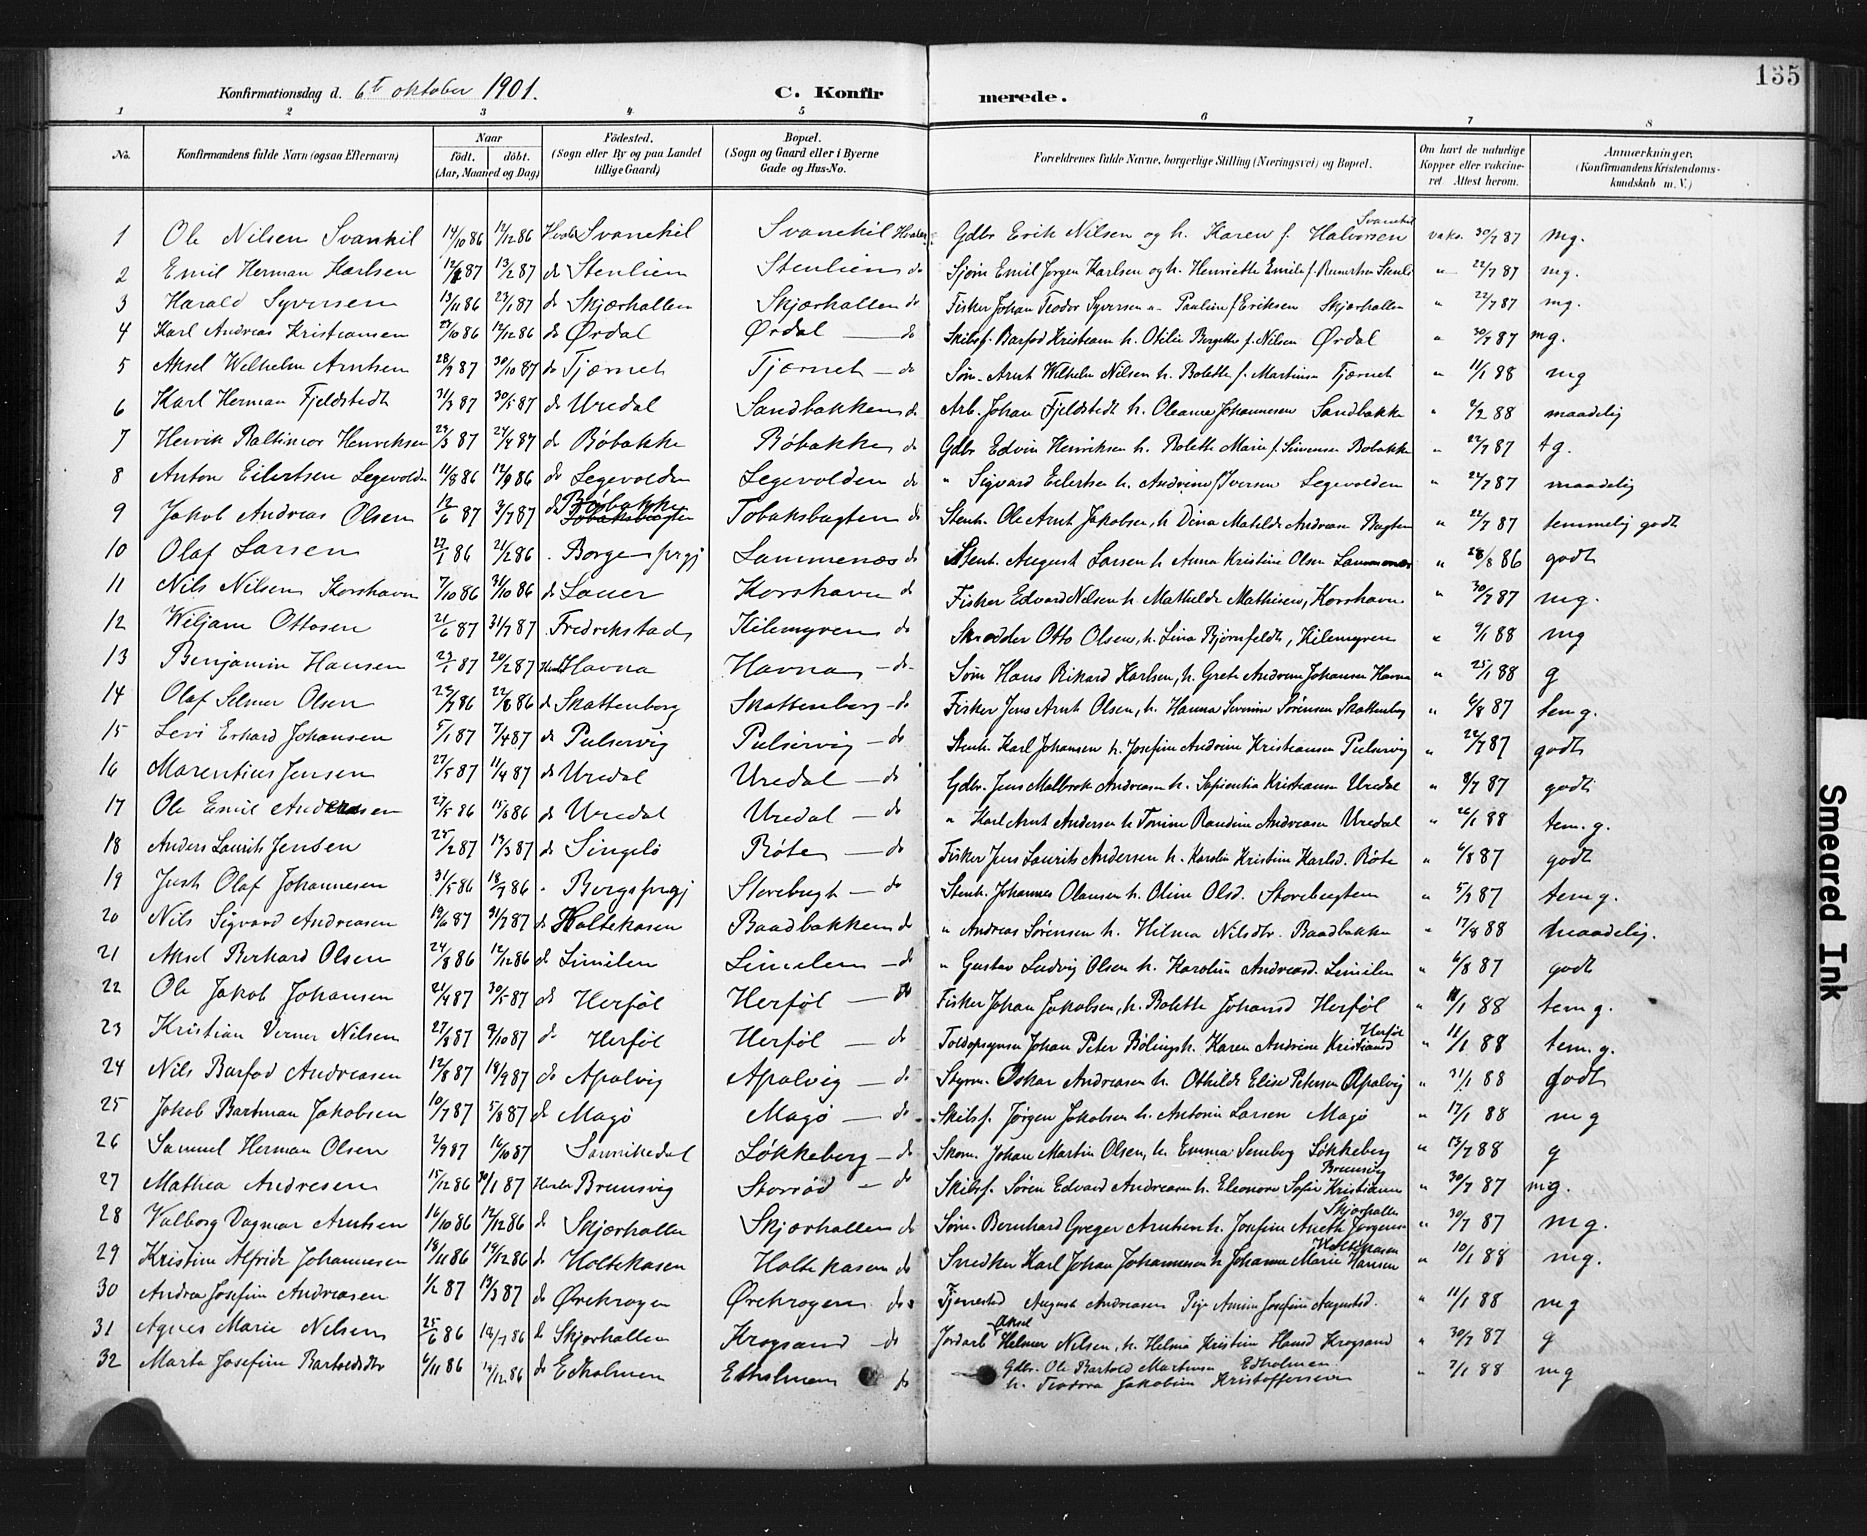 135
Konfirmationsdag d. 6te oktober 1901. C. Konfirmerede.
1 2 3 4 5 6 7 8
No. Konfirmandens fulde Navn (ogsaa Efternavn) Naar födt. döbt. (Aar, Maaned og Dag) Födested. (Sogn eller By og paa Landet tillige Gaard) Bopæl. (Sogn og Gaard eller i Byerne Gade og Hus-No. Forældrenes fulde Navne, borgerlige Stilling (Næringsvei) og Bopæl. Om havt de naturlige Kopper eller vakcineret. Attest herom. Anmærkninger, (Konfirmandens Kristendomskundskab m. V.)
1 Ole Nilsen Svanekil 14/10 86 12/12 86 Hvaler Svanekil Svanekil Hvaler Gdbr Erik Nilsen og h. Karen f. Halvorsen Svanekil vakc. 30/7 87 mg.
2 Emil Herman Karlsen 13/2 87 do Stenlien Stenlien do Sjøm Emil Jørgen Karlsen og h. Henriette Emilie f. " 22/7 87 mg.
3 Harald Syversen 13/11 86 23/1 87 do Skjærhallen Skjærhallen do Fisker Johan Teodor Syversen " Pauline f Eriksen Skjærhallen " 22/7 87 mg.
4 Karl Andreas Kristiansen 12/12 86 do Ørdal Ørdal do Skibsf. Barfod Kristiansen h. Otilie Bergette f. Nilsen Ørdal " 30/7 87 mg.
5 Aksel Wilhelm Arntsen 28/9 87 30/10 87 do Tjærnet Tjærnet - do Søm. Arnt Wilhelm Nilsen h. Bolette f. Martinsen Tjærnet " 11/1 88 mg
6 Karl Herman Fjeldstedt 31/3 87 30/5 87 do Uredal Sandbakken do Arb. Johan Fjeldstedt h. Oleana Johannesen Sandbakke " 88 maadelig
7 Henrik Baltinior Henriksen 87 24/4 87 do Bøbakke Bøbakke do Gdbr Edvin Henriksen h. Bolette Marie f. Simensen Bøbakke " 22/7 87 tg.
8 Anton Eilertsen Legevolden 11/8 86 12/9 86 do Legevolden Legevolden do " Sigvard Eilertsen h. Andrine f Iversen Legevolden " 87 maadelig
9 Jakob Andreas Olsen 12/6 87 3/7 87 do Bøbakke Tobaksbugten Tobaksbugten do Stenh. Ole Arnt Jakobsen, h Dina Matilde Andreasen Bugten " 22/7 87 temmelig godt
10 Olaf Larsen 86 21/2 86 Borge prgj Lammenæs do Stenh. August Larsen h Anna Kristine Olsen Lammenæs " 28/8 86 godt
11 Nils Nilsen Korshavn 7/10 86 31/10 86 do Lauer Korshavn do Fisker Edvard Nilsen h. Mathilde Mathisen, Korshavn " 30/7 87 mg.
12 Wiljam Ottosen 21/6 87 31/7 87 Fredrikstad Kilemyren do Skrædder Otto Olsen, h. Lina Bjørnfeldt, Kilemyren " 9/1 88 mg
13 Benjamin Hansen 87 20/2 87 Havna Havna - do Søm Hans Rikard Karlsen, h. Grete Andrine Johansen Havna " 25/1 88 g
14 Olaf Selmer Olsen 86 22/8 86 do Skattenborg Skattenborg - do Fisker Jens Arnt Olsen, h. Hanna Severine Sørensen Skattenborg " 6/8 87 tem g.
15 Levi Erhard Johansen 5/1 87 7/4 87 do Pulservig Pulservig - do Stenh. Karl Johansen h. Josefine Andrine Kristiansen Pulservig " 22/7 87 godt
16 Marentius Jensen 87 11/4 87 do Uredal Uredal - do Gdbr. Jens Malbrok Andreasen h. Sapientia Kristiansen Uredal " 87 godt
17 Ole Emil Andersen 27/5 86 15/8 86 do Uredal Uredal - do " Karl Arnt Andersen h Tonine Randine Andreasen Uredal " 26/1 88 tem. g.
18 Anders Laurits Jensen 87 13/3 87 do Singelö Røte - do Fisker Jens Laurits Andersen h. Karolin Kristine Karlsd. Røte " 6/8 87 godt
19 Just Olaf Johannesen 31/5 86 18/7 86 Berge prgj Storebugt - do Stenh. Johannes Olausen h. Oline Olsd. Storebugten " 87 tem g.
20 Nils Sigvard Andreasen 19/6 87 31/7 87 do Holtekasen Baadbakken do " Andreas Sørensen h. Hilma Nilsdtr. Baadbakke " 17/8 88 maadelig.
21 Aksel Berhard Olsen 24/8 86 12/12 86 do Limilen Limilen - do " Gustav Ludvig Olsen h. Karoline Andreasd. Limilen " 6/8 87 godt
22 Ole Jakob Johansen 21/4 87 30/5 87 do Herföl Herföl - do Fisker Johan Jakobsen, h. Bolette Johansd Herföl " 88 tem g.
23 Kristian Verner Nilsen 87 9/10 87 do Herföl Herföl - do Toldopsynsm Johan Peter Bølings h. Karen Andrine Kristiansd Herföl " 11/1 88 tem. g.
24 Nils Barfod Andreasen 12/8 87 18/9 87 do Apalvig Apalvig - do Styrm. Oskar Andreasen h. Othilde Elise Petersen Apalvig " 88 godt
25 Jakob Bartman Jakobsen 10/7 87 5/8 87 do Magö Magö - do Skibsf. Jørgen Jakobsen h. Antonie Larsen Magö " 17/1 88 mg
26 Samuel Herman Olsen 87 16/10 87 Sannikedal Løkkeberg - do Skom. Johan Martin Olsen, h. Emma Løkkeberg " 13/7 88 g
27 Mathea Andresen 15/12 86 30/1 87 Hvaler Brunsvig Storröd - do Skibsf. Sören Edvard Andreasen h. Eleonore Sofie Kristiansen Brunsvig " 30/7 87 mg.
28 Valborg Dagmar Arntsen 16/10 86 12/12 86 do Skjærhallen Skjærhallen do Søm. Bernhard Greger Arntsen h. Josefine Aneth Jørgensen Skjærhallen " 30/7 87 mg.
29 Kristine Alfride Johannesen 18/11 86 19/12 86 do Holtekasen Holtekasen do Snedker Karl Johan Johannesen h Johanne Marie Hansen Holtekasen " 10/1 88 mg.
30 Andrea Josefine Andreasen 1/2 87 13/3 87 do Ørekrogen Ørekrogen do Tjenested August Andreasen Pige Amine Josefine Augustsd. " 11/1 88 mg
31 Agnes Marie Nilsen 25/6 86 86 do Skjærhallen Krogsand - do Jordarb Aksel Helmer Nilsen, h. Helmine Kristine Hansd Krogsand " 30/7 87 g
32 Marte Josefine Bartoldsdtr 6/11 86 86 do Edholmen Etholmen do Gdbr. Ole Bartold Martinsen Edholmen
h. Teodora Jakobine Kristoffersen " 88 mg
Smeared Ink